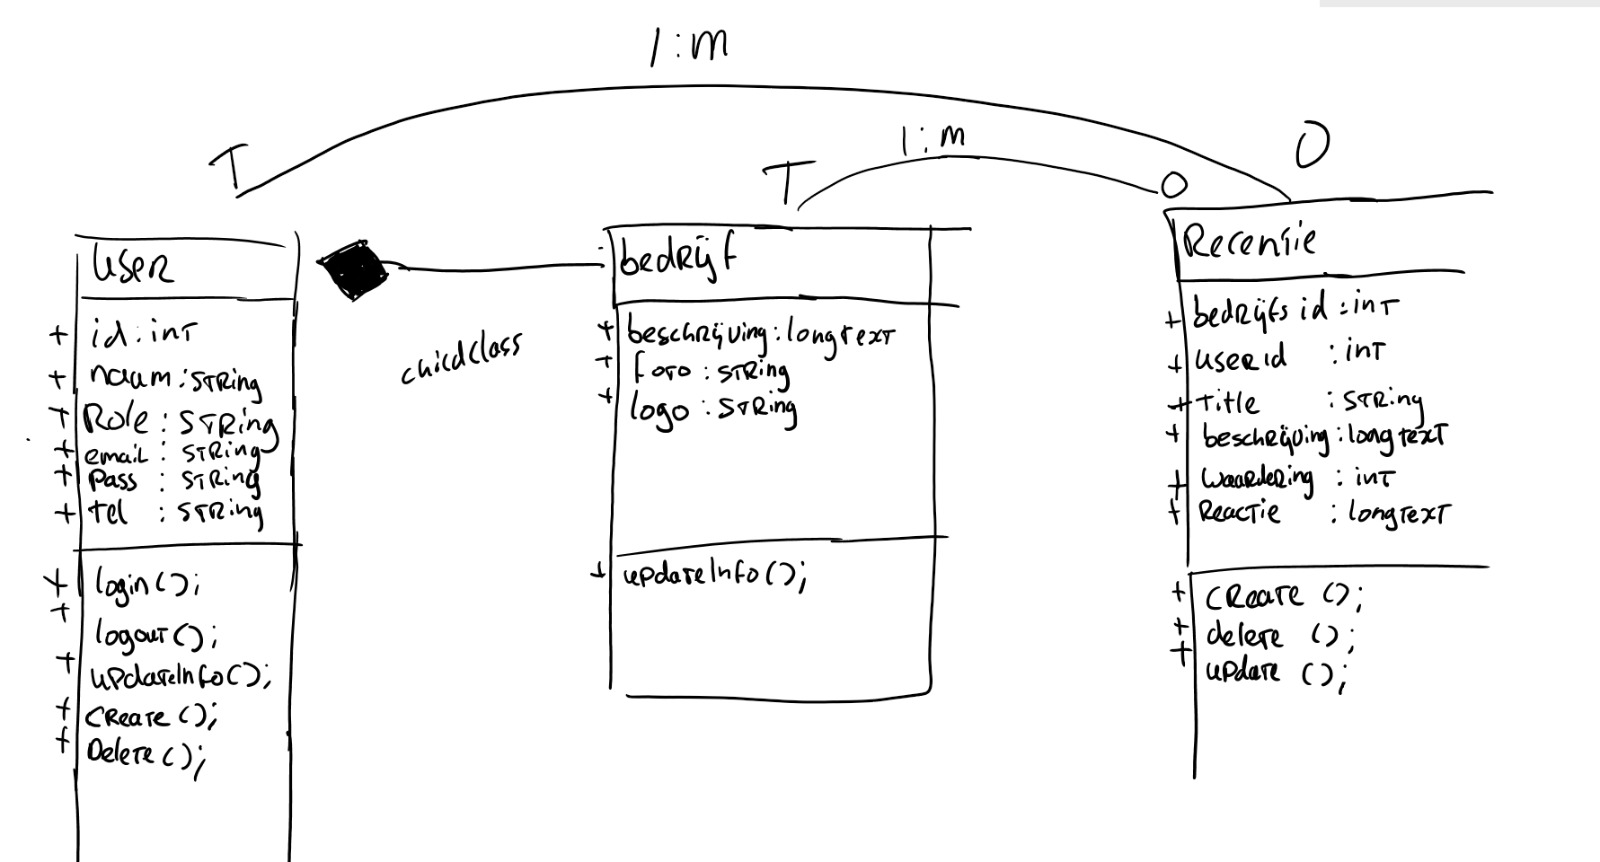 1:m
1:m
T
T
O
O
User
+ id:int
+ naam:String
+ Role:String
+ email:String
+ Pass:String
+ tel:String
+ login();
+ logout();
+ updateInfo();
+ Create();
+ Delete();
childclass
bedrijf
+ beschrijving:longtext
+ foto:String
+ logo:String
+ updateInfo();
Recensie
+ bedrijfs id:int
+ user id:int
+ Title:String
+ beschrijving:longtext
+ Waardering:int
+ Reactie:longtext
+ Create();
+ delete();
+ update();